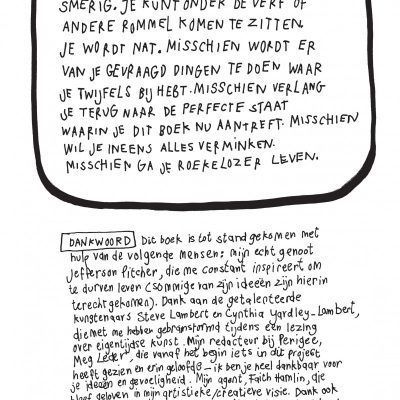 SMERIG. JE KUNT ONDER DE VERF OF
ANDERE ROMMEL KOMEN TE ZITTEN.
JE WORDT NAT. MISSCHIEN WORDT ER
VAN JE GEVRAAGD DINGEN TE DOEN WAAR
JE TWIJFELS BIJ HEBT. MISSCHIEN VERLANG
JE TERUG NAAR DE PERFECTE STAAT
WAARIN JE DIT BOEK NU AANTREFT. MISSCHIEN
WIL JE INEENS ALLES VERMINKEN.
MISSCHIEN GA JE ROEKELOZER LEVEN.
DANKWOORD Dit boek is tot stand gekomen met
hulp van de volgende mensen: mijn echtgenoot
Jefferson Pitcher, die me constant inspireert om
te durven leven (sommige van zijn ideeën zijn hierin
terechtgekomen). Dank aan de getalenteerde
kunstenaars Steve Lambert en Cynthia Yardley-Lambert,
die met me hebben gebrainstormd tijdens een lezing
over eigentijdse kunst. Mijn redacteur bij Perigee,
Meg Leder, die vanaf het begin iets in dit project
heeft gezien en erin geloofde – ik ben je heel dankbaar voor
je ideeën en gevoeligheid. Mijn agent, Faith Hamlin, die
bleef geloven in mijn artistieke/creatieve visie. Dank ook